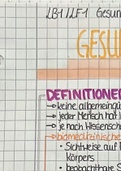 LB1 / LF1 Gesun
GESU
DEFINITIONE
keine allgemeingü
jeder Mensch hat
je nach Wissensch
biomedizinische
Sichtweise auf
Körpers